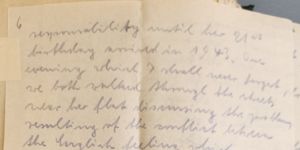 6
responsibility until her 21st
birthday arrived in 1943. One
evening which I shall never forget,
we both walked through the streets
near her flat discussing the problems
resulting of the conflict between
the English feeling